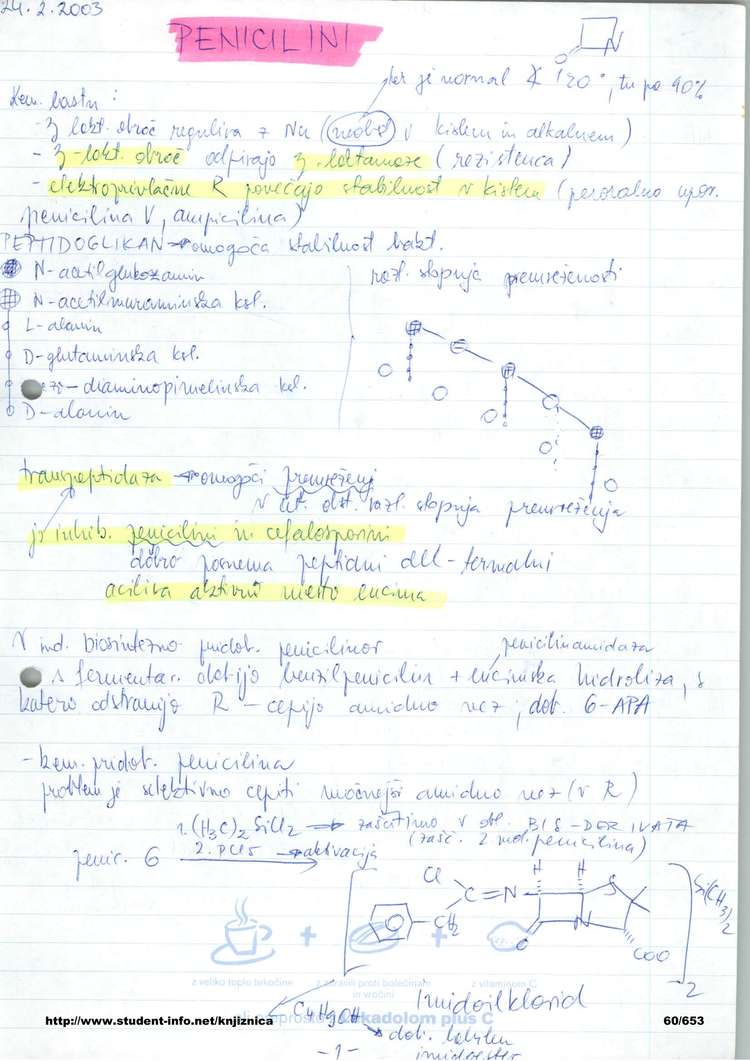 24.2.2003
PENICILINI
ker je normal ∢ 120°, tu pa 90%
Kem. lastn:
-β lakt. obroč reagulira z Nu (neobst v kislem in alkalnem)
- β-lakt. obroč odpirajo β-laktamaze (rezistenca)
- elektroprivlačne R povečajo stabilnost v kislem (peroralno upor.
penicilina V, ampicilina)
PEPTIDOGLIKAN → omogoča stabilnost bakt.
N-acetilglukozamin
razl. stopnja premreženosti
N-acetilmuraminska ksl.
L-alanin
D-glutaminska ksl.
-diaminopimelinska ksl.
D-alanin
transpeptidaza → omogoči premreženj
razl. stopnja premreženja
je inhib. penicilini in cefalosporini
dobro posnema peptidni del-termalni
acilira aktivno mesto encima
V ind. biosintezno pridob. penicilinov
penicilinamidaza
s fermentac. dobijo benzilpenicilin + encimska hidroliza, s
katero odstranijo R - cepijo amidno vez; dob. 6-APA
- kem. pridob. penicilina
problem je selektivno cepiti močnejšo amidno vez (v R)
1. (H3C)2SiCl2 → zaščitimo v obl. BIS-DERIVATA
(zašč. 2 mol. penicilina)
penic. G
2. PCl5 → aktivacija
Cl
H H
C=N
S
CH2
N
O
COO
Si(CH3)2
2
+ +
z veliko toplo tekočine
z zdravili proti bolečinam
in vročini
z vitaminom C
Imidoilklorid
C4H9OH
ali preprosto Lekadolom plus C
http://www.student-info.net/knjiznica
60/653
dob.
-1-
imidoester